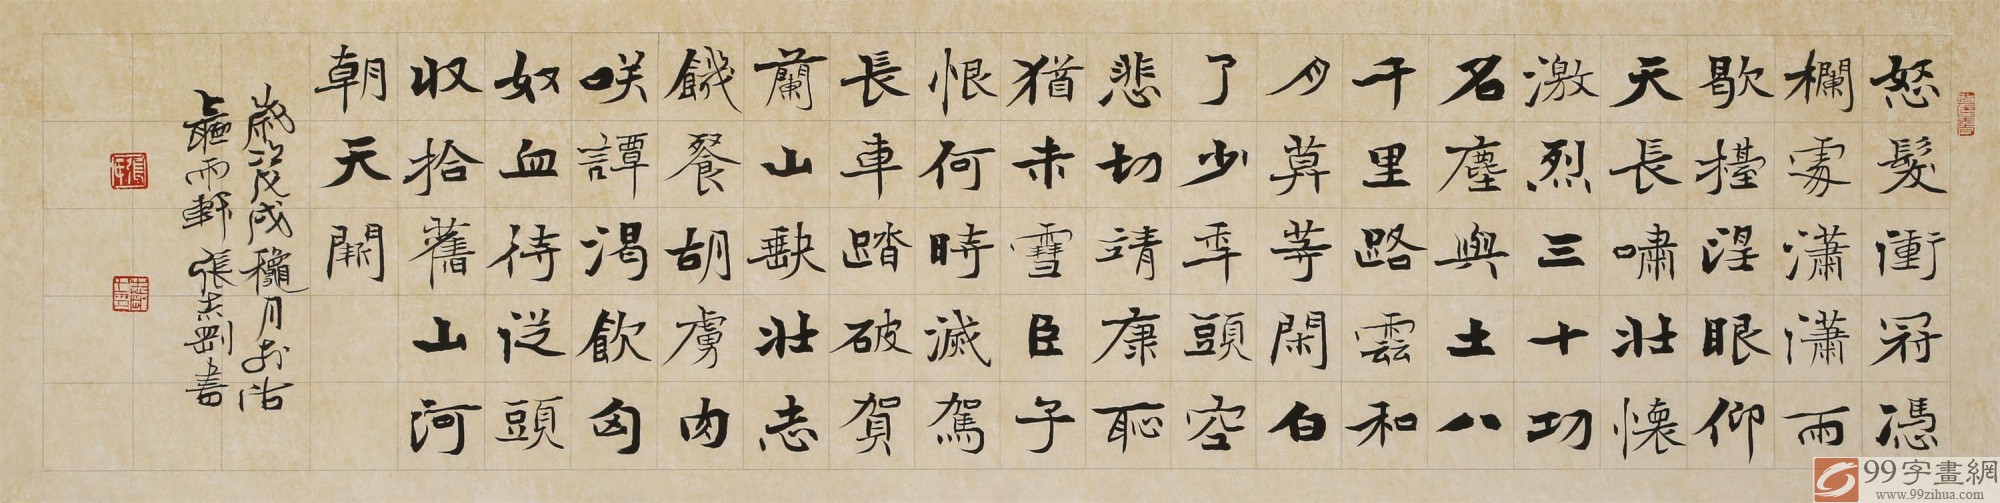 怒髮衝冠憑
欄處瀟瀟雨
歇擡望眼仰
天長嘯壯懷
激烈三十功
名塵與土八
千里路雲和
月莫等閑白
了少年頭空
悲切靖康恥
猶未雪臣子
恨何時滅駕
長車踏破賀
蘭山缺壯志
饑餐胡虜肉
咲譚渴飲匈
奴血待從頭
收拾舊山河
朝天闕
歲次戊戌龝月於沽
上聽雨軒張志剛書
99字畫網
www.99zihua.com